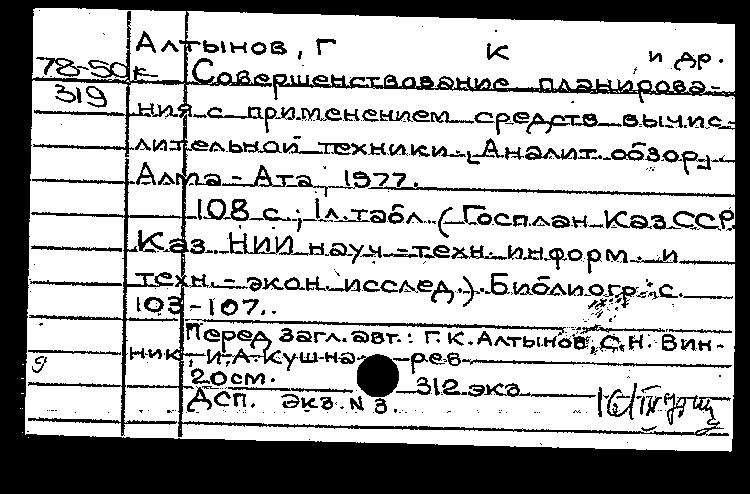 Алтынов, Г К и др.
78-50к Совершенствование планирова-
319 ния с применением средств вычис-
лительной техники. [Аналит. обзор]
Алма-Ата, 1977.
108 с.; 1 л. табл. (Госплан КазССР.
Каз НИИ науч-техн. информ. и
техн.-экон. исслед.). Библиогр: с.
103-107..
Перед загл. авт.: Г.К. Алтынов, С.Н. Вин-
ник, И.А. Кушна рев
9
20 см. 312 экз
ДСП. экз. N 3.